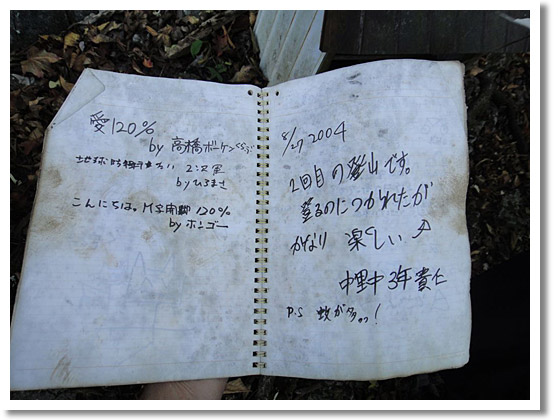 愛120%
by 高橋ボーケン
地球防衛
by ひろまさ
こんにちは。M字開脚120%
by ホンゴー
8/27 2004
2回目の登山です。
登るのにつかれたが
かなり 楽しい
中里中 3年 貴仁
P.S 蚊が多いっ!